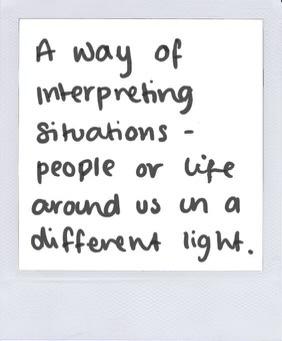 A way of
interpreting
situations -
people or life
around us in a
different light.